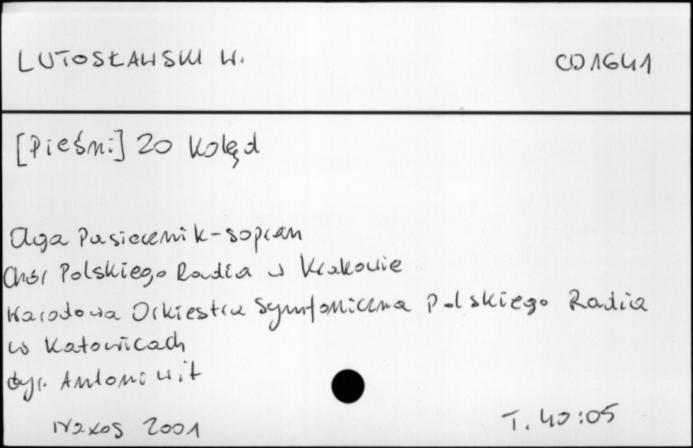 LUTOSŁAWSKI W. CD1641
[Pieśni] 20 Kolęd
Olga Pasiecznik-sopran
Chór Polskiego Radia w Krakowie
Narodowa Orkiestra Symfoniczna Polskiego Radia
w Katowicach
dyr. Antoni Wit
Naxos 2001 T. 40:05